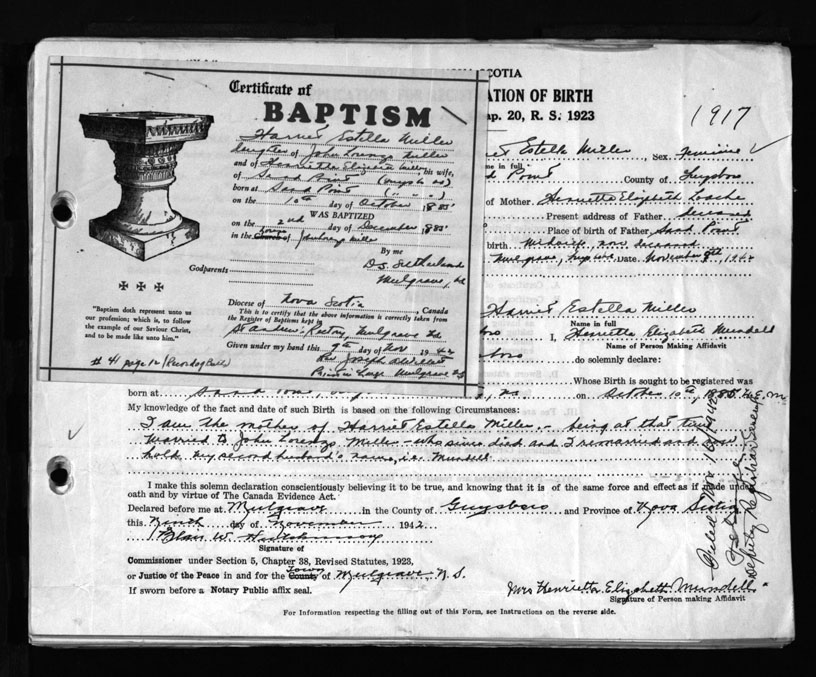 Certificate of
BAPTISM
Harriet Estella Miller
daughter of John Lorenzo Miller
and of Henrietta Elizabeth his wife,
of Sand Point
born at Sand Point
on the 10th day of October 1885
WAS BAPTIZED
on the 2nd day of December 1885
in the Church of John Lorenzo Miller
By me
D. S. Sutherland
Godparents
Mulgrave, NS
Diocese of Nova Scotia Canada
This is to certify that the above information is correctly taken from
the Register of Baptisms kept in
St Andrew's Rectory, Mulgrave NS
Given under my hand this 9th day of Nov 1942
Rev Joseph
Priest in Charge Mulgrave NS
"Baptism doth represent unto us
our profession; which is, to follow
the example of our Saviour Christ,
and to be made like unto him."
# 41 page 12
SCOTIA
ATION OF BIRTH
ap. 20, R. S. 1923
1917
Estella Miller Sex Feminine
me in full
d Point County of Guysboro
of Mother Henrietta Elizabeth
Present address of Father deceased
Place of birth of Father Sand Point
birth Midwife, now deceased
Mulgrave, Date November 9th, 1942
Harriet Estella Miller
Name in full
I, Henrietta Elizabeth Mundell
Name of Person Making Affidavit
do solemnly declare:
Whose Birth is sought to be registered was
born at Sand Point, on October 10th, 1885 H.E.M
My knowledge of the fact and date of such Birth is based on the following Circumstances:
I am the mother of Harriet Estella Miller, being at that time
married to John Lorenzo Miller who since died and I remarried and now
hold my second husband's name, i.e. Mundell
I make this solemn declaration conscientiously believing it to be true, and knowing that it is of the same force and effect as if made under
oath and by virtue of The Canada Evidence Act.
Declared before me at Mulgrave in the County of Guysboro and Province of Nova Scotia
this Ninth day of November 1942
Blair W. Hutchinson
Signature of
Commissioner under Section 5, Chapter 38, Revised Statutes, 1923,
or Justice of the Peace in and for the County Town of Mulgrave, N.S.
If sworn before a Notary Public affix seal.
Mrs Henrietta Elizabeth Mundell
Signature of Person making Affidavit
For Information respecting the filling out of this Form, see Instructions on the reverse side.
Filed Nov 16/1942
Deputy Registrar General